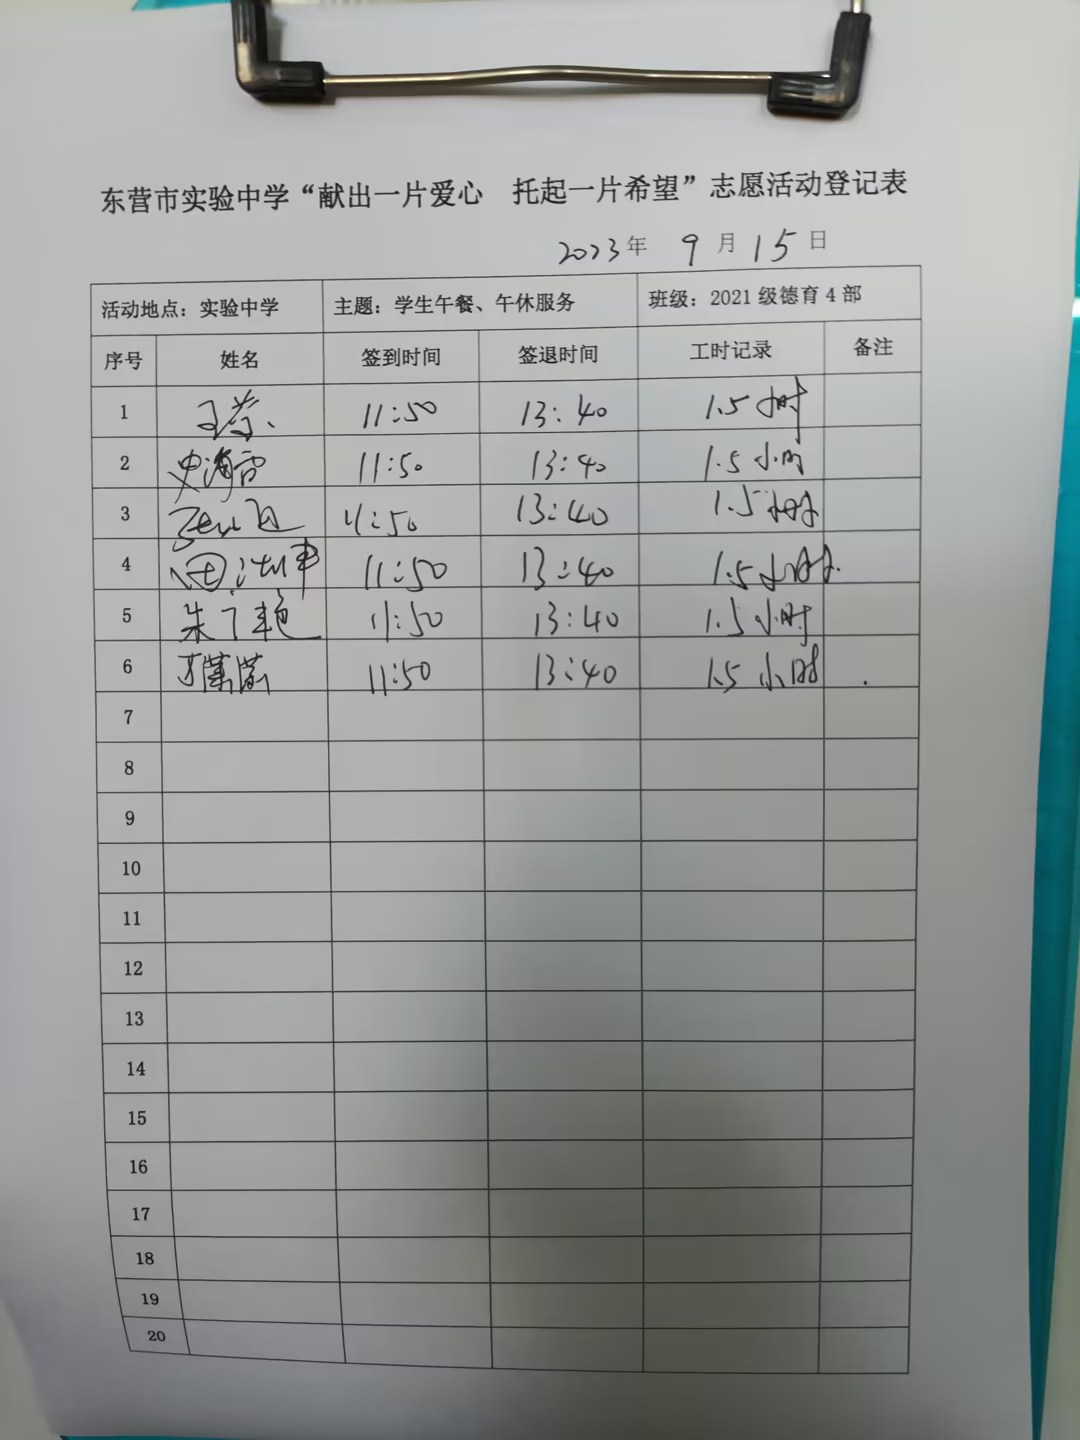 东营市实验中学“献出一片爱心 托起一片希望”志愿活动登记表
2023年 9月15日
活动地点：实验中学 主题：学生午餐、午休服务 班级：2021级德育4部
序号 姓名 签到时间 签退时间 工时记录 备注
1 11:50 13:40 1.5小时
2 11:50 13:40 1.5小时
3 11:50 13:40 1.5小时
4 11:50 13:40 1.5小时.
5 11:50 13:40 1.5小时
6 11:50 13:40 1.5小时
7
8
9
10
11
12
13
14
15
16
17
18
19
20